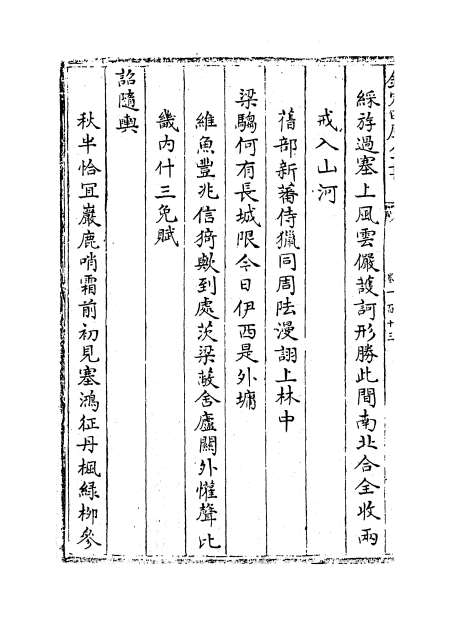 卷一百十三
綵斿過塞上風雲儼䕶訶形勝此間南北合全收兩
戒入山河
舊部新蕃侍獵同周阹漫詡上林中
梁騶何有長城限今日伊西是外墉
維魚豐兆信猗歟到處茨梁蔽舍廬關外懽聲比
畿内什三免賦
詔隨輿
秋半恰冝巖鹿哨霜前初見塞鴻征丹楓緑栁參